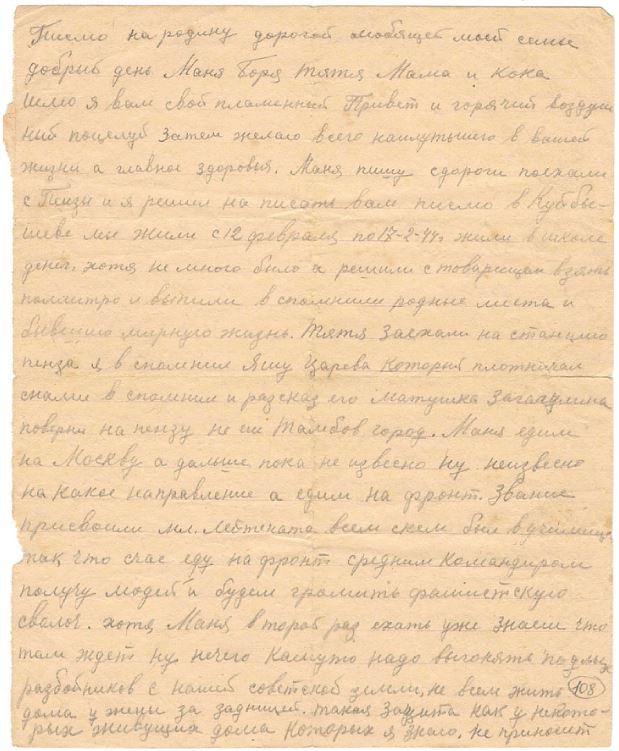 Писмо на родину дорогой любящей моей семье
добрый день Маня Боря тятя Мама и Кока
шлю я вам свой пламенный Привет и горячий воздуш
ный поцелуй Затем желаю всего наилутшего в вашей
жизни а главное здоровья. Маня пишу сдороги поехали
с Пензы и я решил на писать вам писмо в Куйбы-
шеве мы жили с 12 февраля по 17-2-44г жили в школе
денег, хотя не много было а решили с товарищем взять
поллитро и выпили в спомнили родные места и
бывшию мирную жизнь. Тятя Заехали на станцию
пенза я в спомнил Яшу Царева который плотничал
снами в спомнил и разсказ его Матушка
поверни на пензу не Тамбов город. Маня едим
на Москву а дальше пока не извесно ну неизвесно
на какое направление а едим на фронт. Звание
присвоили мл. Лейтената всем скем был в училище
так что счас еду на фронт средним командиром
получу людей и будем громить фашистскую
сволоч. хотя Маня второй раз ехать уже знаем что
там ждет ну нечего камуто надо выгонять подлых
разбойников с нашей советской земли, не всем жить 108
дома у жены за задницей. такая защита как у некото-
рых живущих дома которых я знаю, не приносит